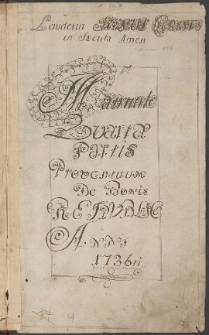 Laudetur JESUS CHRISTUS
in Sæcula Amen
Manuale
Quartæ
Partis
Proventuum
De Bonis
REIPUBLICÆ
ANNI
1736